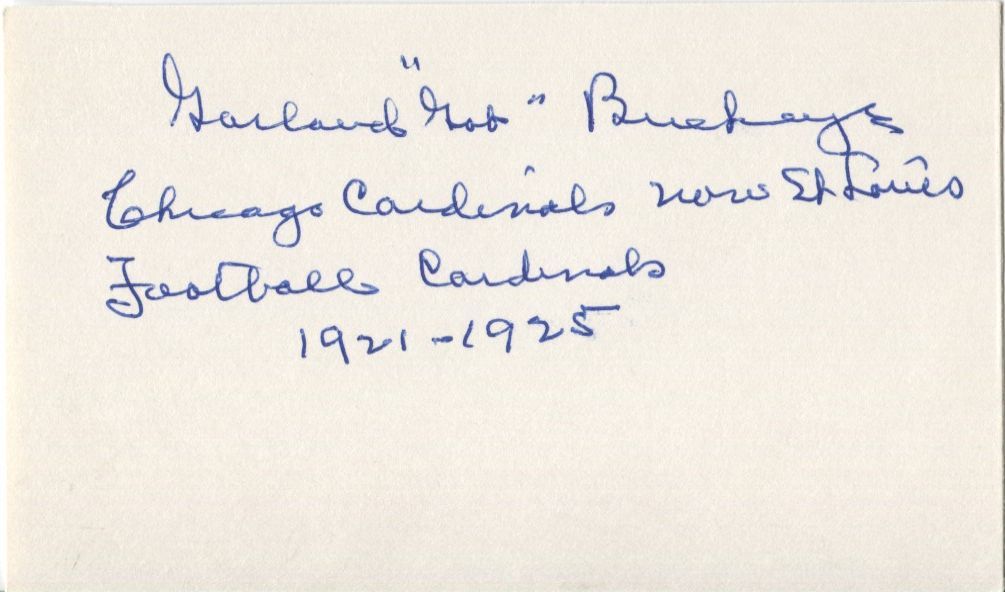 Garland "Gob" Buckeye
Chicago Cardinals now St Louis
Football Cardinals
1921-1925